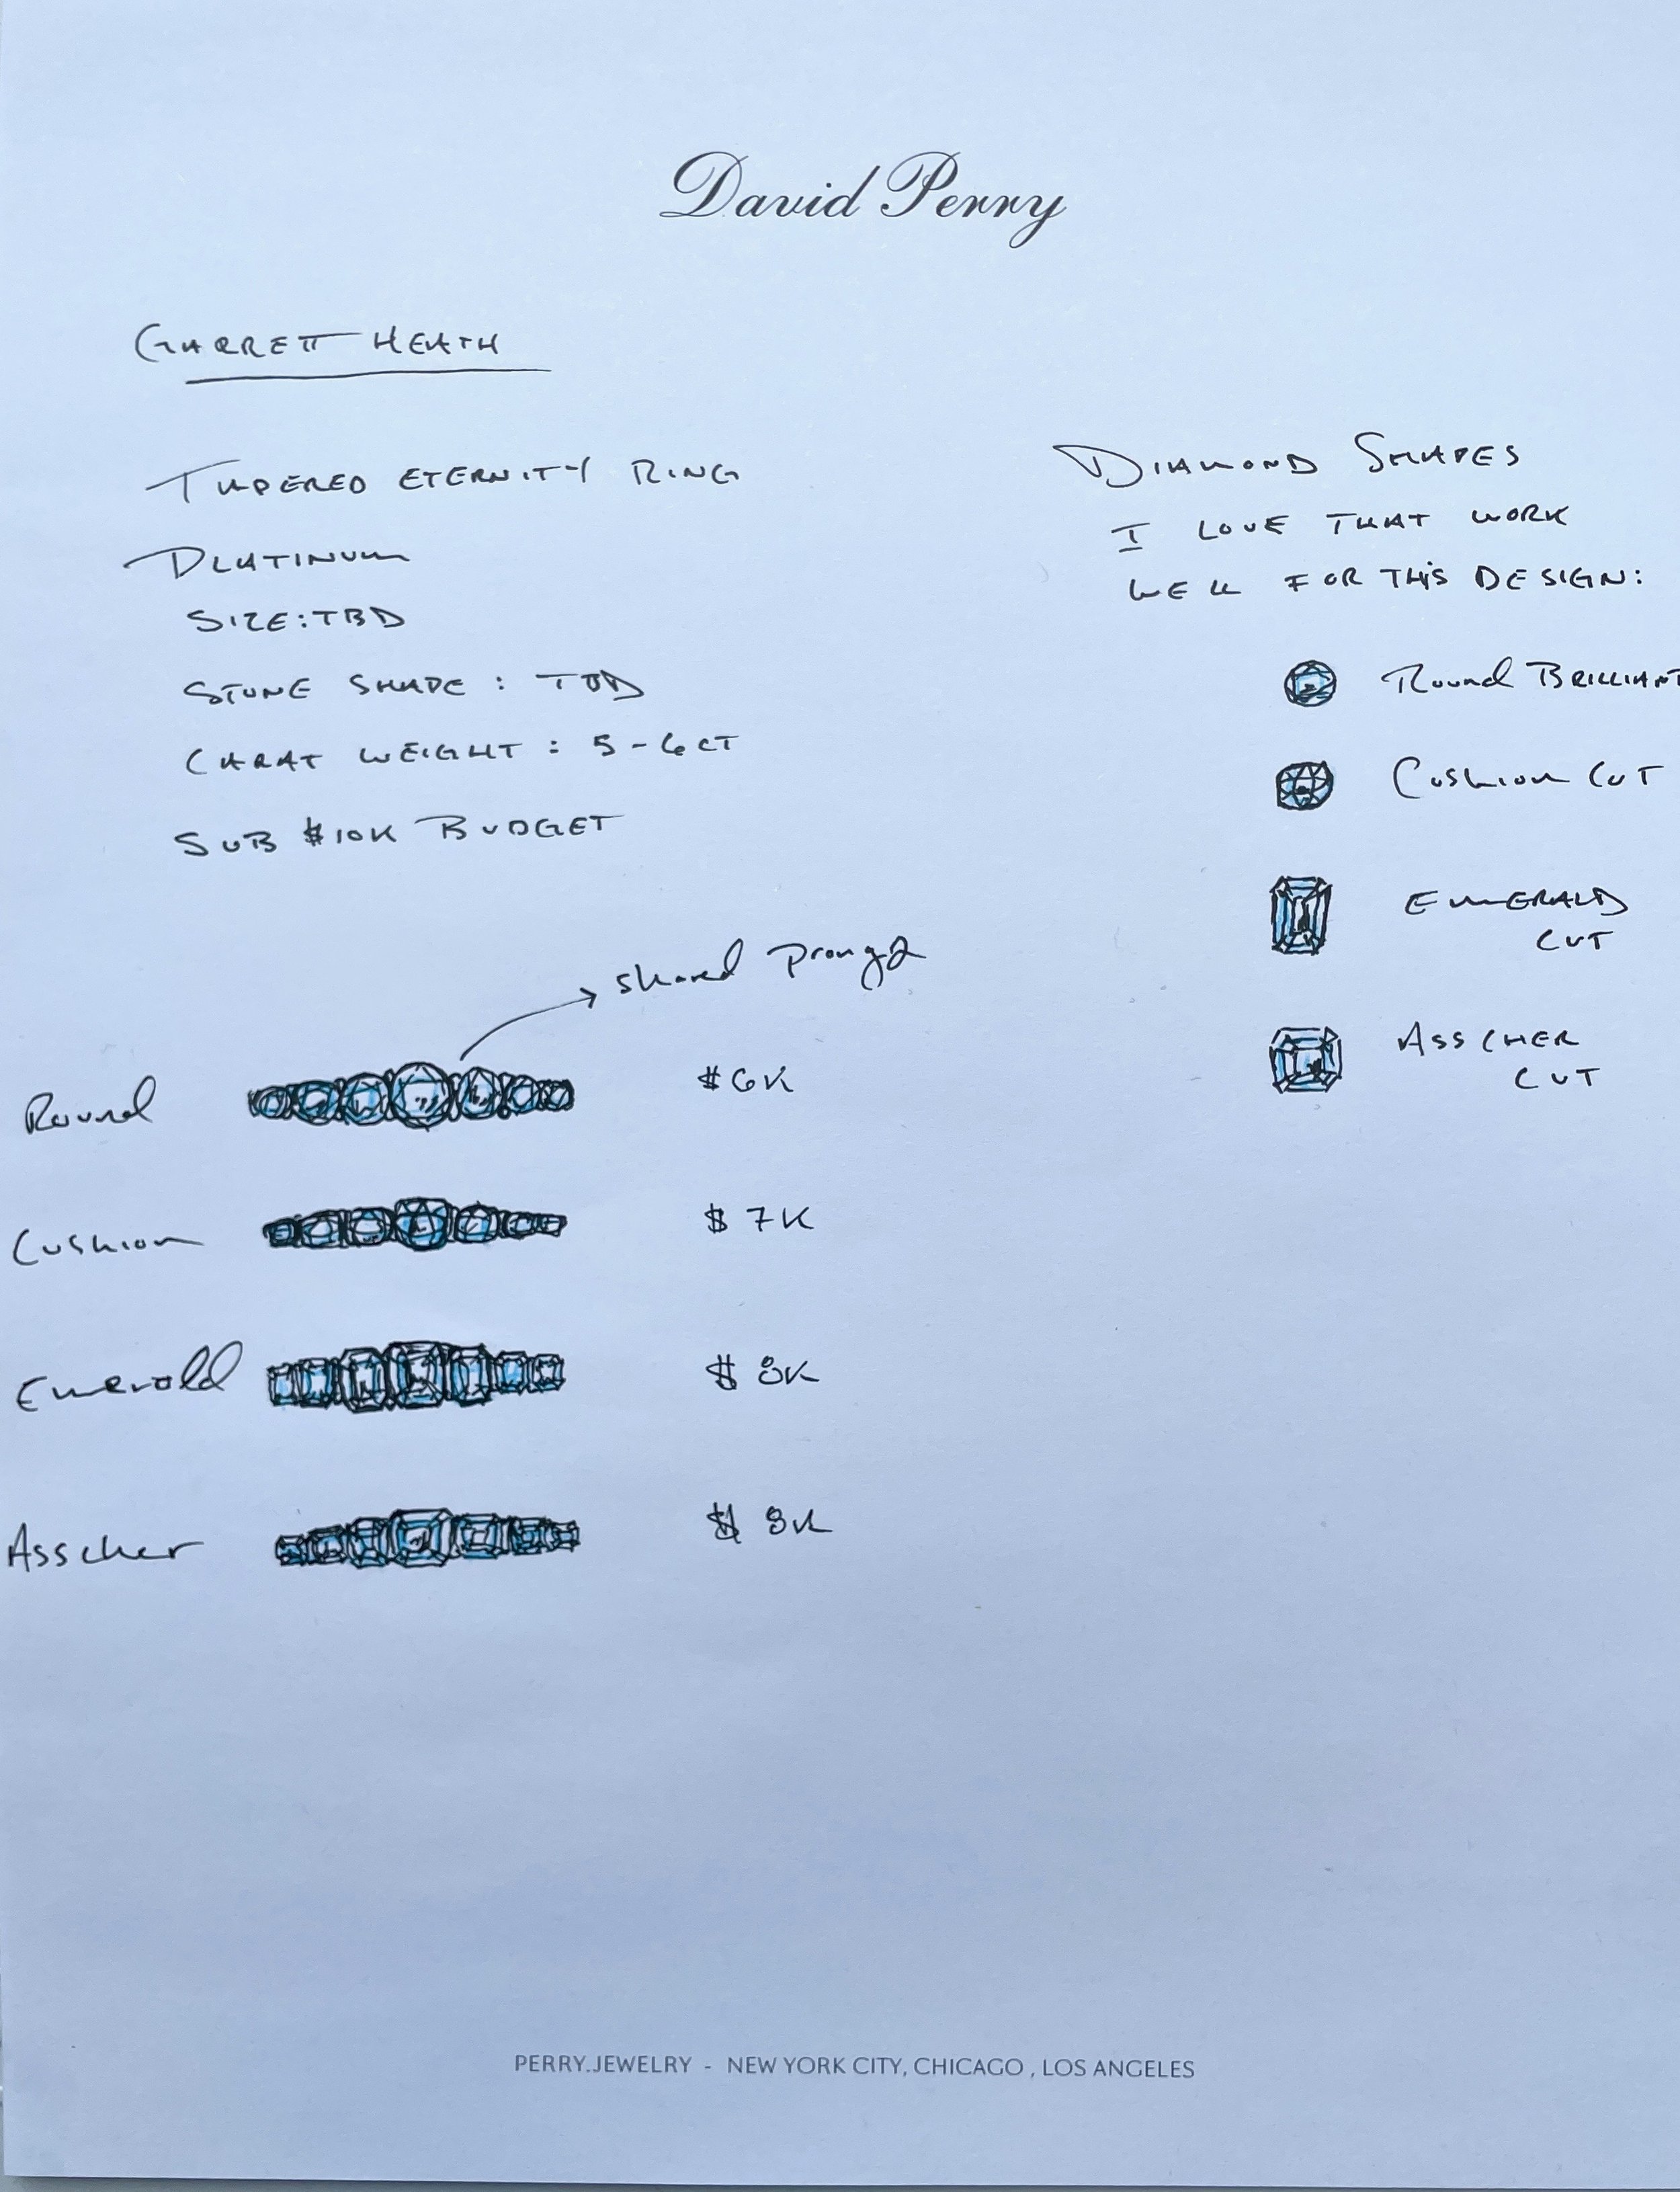 David Perry
GARRETT HEATH
TAPERED ETERNITY RING
PLATINUM
SIZE: TBD
STONE SHAPE: TBD
CARAT WEIGHT: 5-6CT
SUB $10K BUDGET
DIAMOND SHAPES
I LOVE THAT WORK
WELL FOR THIS DESIGN:
Round BRILLIANT
Cushion CUT
EMERALD
CUT
ASSCHER
CUT
shared prongs
Round $6K
Cushion $7K
Emerald $8K
Asscher $8K
PERRY.JEWELRY - NEW YORK CITY, CHICAGO, LOS ANGELES